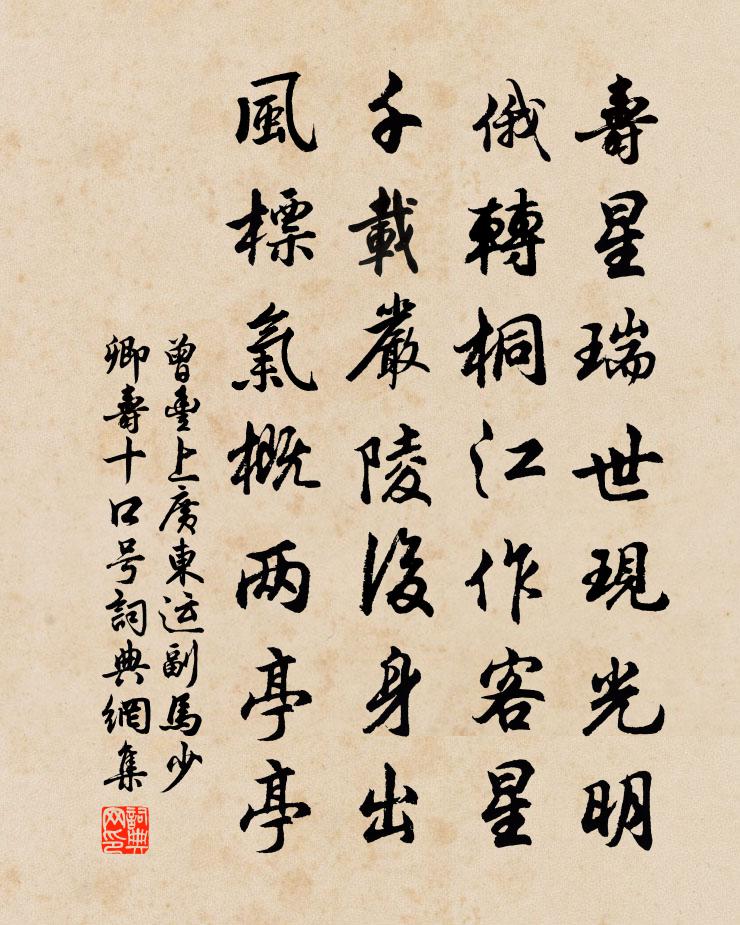 壽星瑞世現光明
俄轉桐江作客星
千載嚴陵後身出
風標氣概两亭亭
曾豊上廣東运副馬少
卿壽十口号詞典網集
詞典
网印